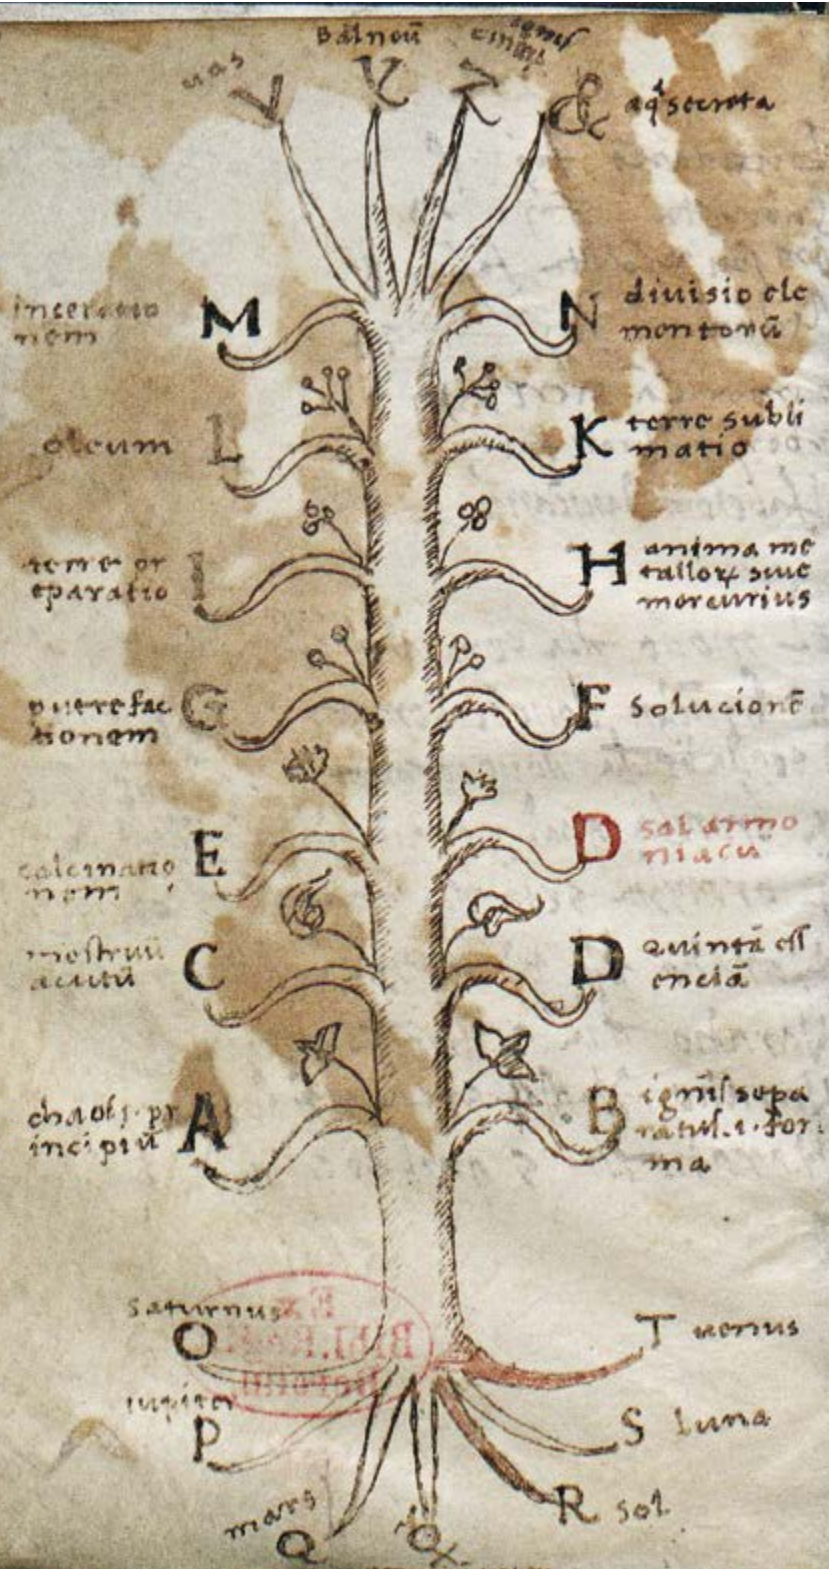 uas
Balneū
cineris
V Y Z & aqᵃ secreta
inceratio
nem
M
N
diuisio ele
mentorū
oleum
L
K
terre subli
matio
terre pr
eparatio
I
H
anima me
tallorꝝ siue
mercurius
putrefac
tionem
G
F
solucionē
calcinatio
nem
E
D
sal armo
niacū
mēstruū
acutū
C
D
quintā ess
enciā
chaos .i. pr
incipiū
A
B
ignis sepa
ratus .i. for
ma
saturnus
O
T uenus
iupiter
P
S luna
mars
Q
R sol
Ex
Bibl. Regia
Berolin.